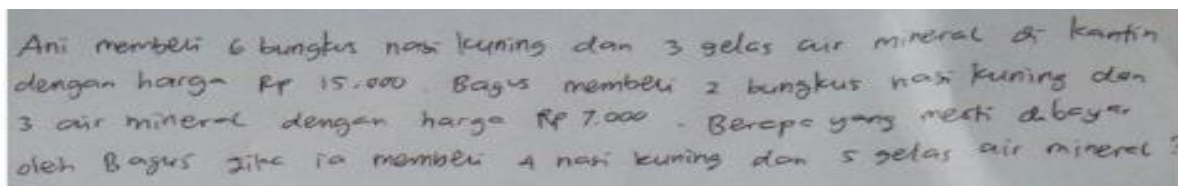 Ani membeli 6 bungkus nasi kuning dan 3 gelas air mineral di kantin
dengan harga Rp 15.000. Bagus membeli 2 bungkus nasi kuning dan
3 air mineral dengan harga Rp 7.000. Berapa yang mesti dibayar
oleh Bagus jika ia membeli 4 nasi kuning dan 5 gelas air mineral?